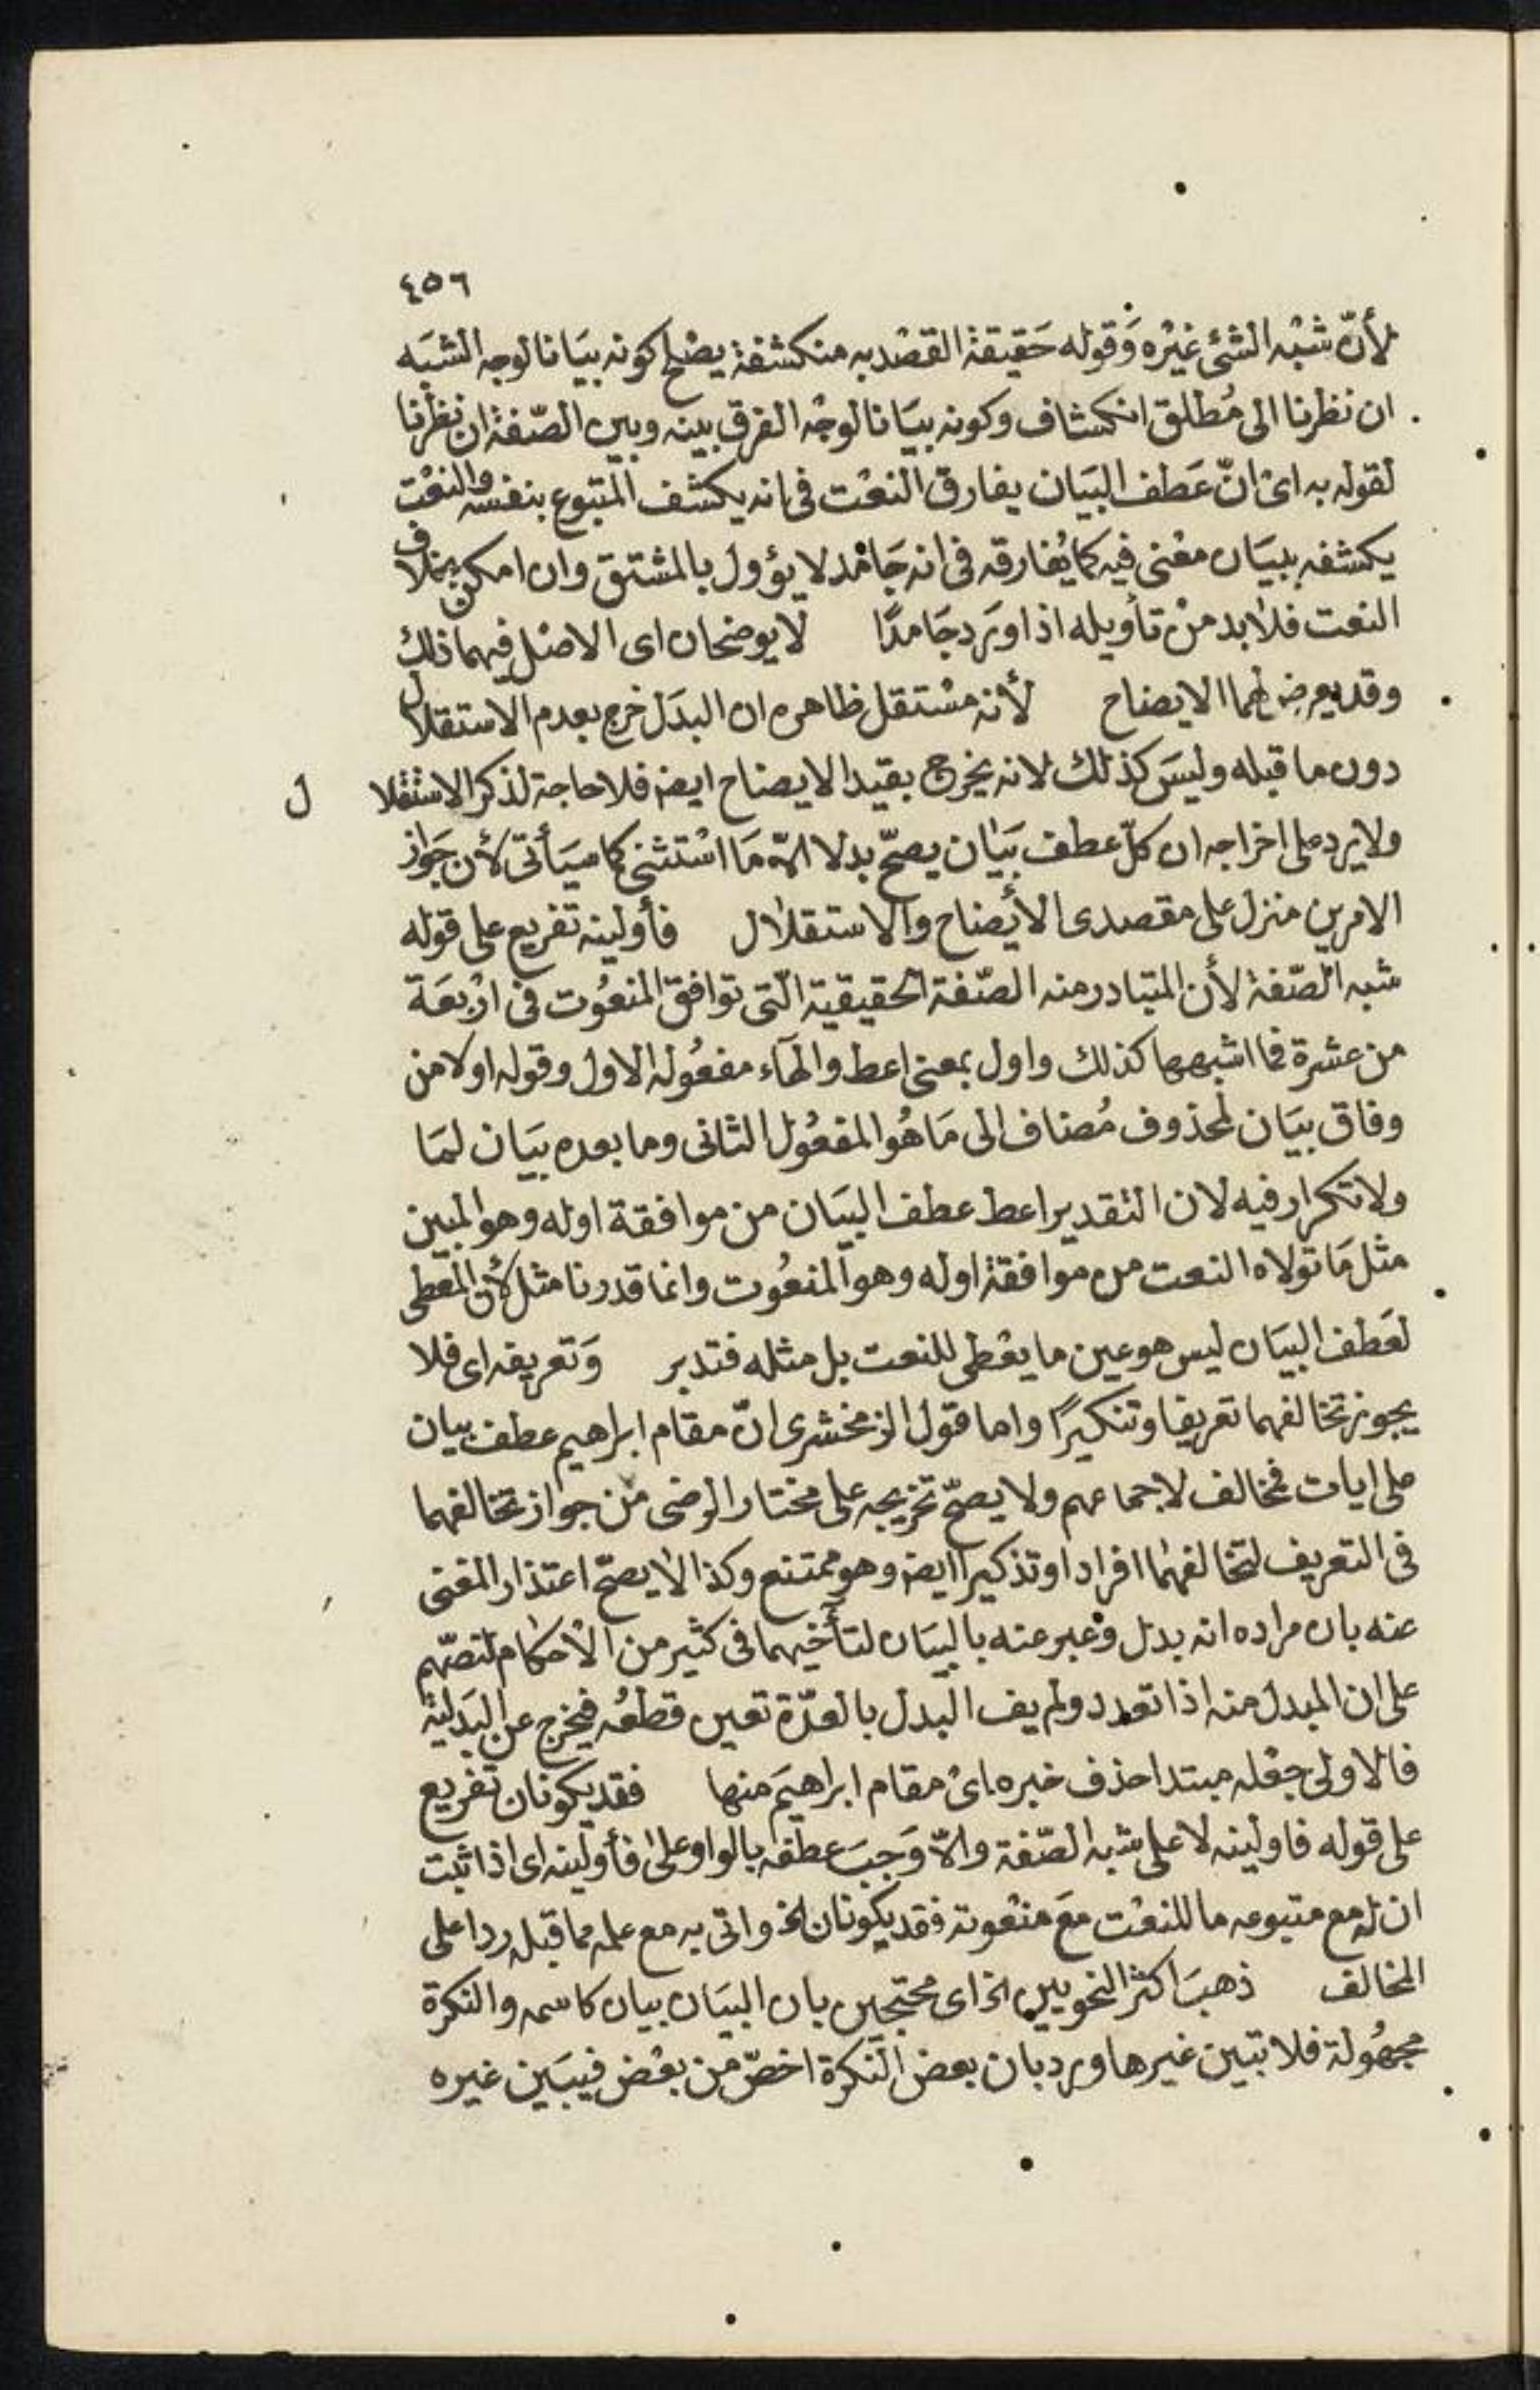 ٤٥٦
لأنّ شبْه الشئ غيْره وَقوله حَقيقة القصْد به منكشفة يصْلح كونه بيَانا لوجه الشبَه
ان نظرنا الى مُطلق انكشاف وكونه بيَانا لوجْه الفرق بينه وبين الصّفة ان نظرنا
لقوله به اىْ انّ عَطف البيَان يفارق النعْت فى انه يكشف المتبوع بنفسه والنعْت
يكشفه ببيَان معْنى فيه كما يُفارقه فى انه جَامْد لا يؤول بالمشتق وان امكن بخلاف
النعت فلا بد منْ تأويله اذا وَرَد جَامدًا لا يوضحان اى الاصْل فيهما ذلك
وقد يعرض لهما الايضاح لأنه مسْتقل ظاهره ان البدَل خرج بعدم الاستقلال
دون ما قبله وليسَ كذلك لانه يخرج بقيد الايضاح ايضه فلا حاجة لذكر الاستقلال
ولا يرد على اخراجه ان كلّ عطف بيَان يصحّ بدلا الاّ مَا اسْتثنى كما سيَأتى لأن جَواز
الامرين منزل على مقصدى الأيْضاح والاستقلال فأولينه تفريع على قوله
شبه الصّفة لأن المتبادر منه الصّفة الحقيقية الّتى توافق المنعُوت فى ارْبعَة
من عشرة فما اشبهها كذلك واول بمعنى اعط والهآء مفعُوله الاول وقوله اولا من
وفاق بيَان لمحذوف مُضاف الى مَا هُو المفعُول الثانى وما بعده بيَان لمَا
ولا تكرار فيه لان التقدير اعط عطف البيَان من موافقة اوله وهو المبين
مثل مَا تولاه النعت من موافقة اوله وهو المنعُوت وانما قدرنا مثل لأن المعطى
لعَطف البيَان ليس هو عين ما يعْطى للنعت بل مثله فتدبر وَتعريفه اى فلا
يجوز تخالفهما تعريفا وتنكيرًا واما قول الزمخشرى انّ مقام ابراهيم عطف بيان
على ايات فمخالف لاجماعهم ولا يصحّ تخريجه على مختار الرضى من جواز تخالفهما
فى التعريف لتخالفهما افرادا وتذكيرا ايضه وهو ممتنع وكذا لا يصحّ اعتذار المغنى
عنه بان مراده انه بدل وعبر عنه بالبيَان لتآخيهما فى كثير من الأحكام لنصّهم
على ان المبدل منه اذا تعدد ولم يف البدل بالعدّة تعين قطعُه فيخرج عن البَدَلية
فالاولى جعْله مبتدا حذف خبره اىْ مقام ابراهيَم منها فقد يكونان تفريع
على قوله فاولينه لا على شبه الصّفة والاّ وَجبَ عطفه بالواو على فأولينه اى اذا ثبت
ان له مع متبوعه ما للنعْت معَ منعْوته فقد يكونان الخ واتى به مع علمه مما قبله ردا على
المخالف ذهبَ اكثر النحويين الخ اى محتجين بان البيَان بيان كاسمه والنكرة
مجهُولة فلا تبين غيرها ورد بان بعض النكرة اخصّ من بعْض فيبيَن غيره